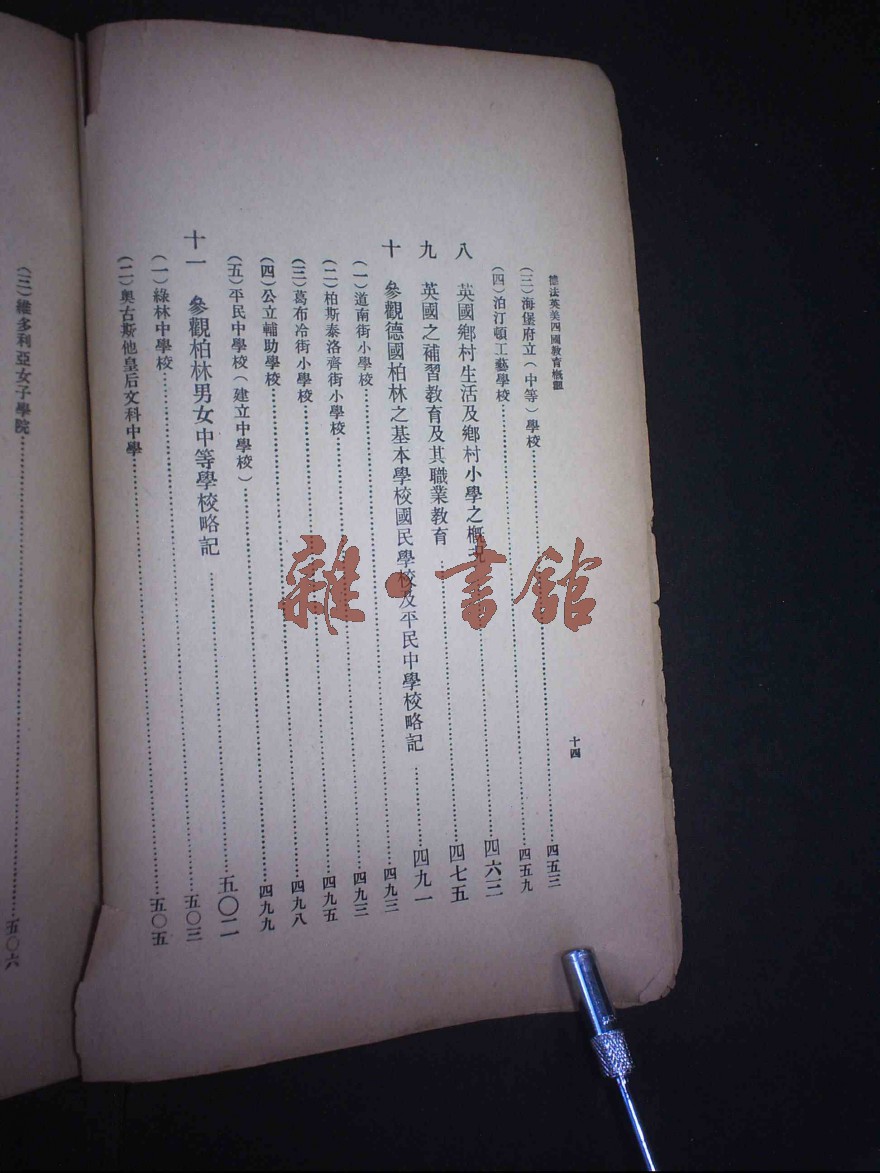 德法英美四國教育概觀
(三)海堡府立(中等)學校……四五三
(四)泊汀頓工藝學校……四五九
八 英國鄉村生活及鄉村小學之概況……四六三
九 英國之補習教育及其職業教育……四七五
十 參觀德國柏林之基本學校國民學校及平民中學校略記……四九一
(一)道南街小學校……四九三
(二)柏斯泰洛齊街小學校……四九三
(三)葛布冷街小學校……四九五
(四)公立輔助學校……四九八
(五)平民中學校(建立中學校)……四九九
十一 參觀柏林男女中等學校略記……五〇二
(一)綠林中學校……五〇三
(二)奧古斯他皇后文科中學……五〇五
十四
(三)維多利亞女子學院……五〇六
雜·書館